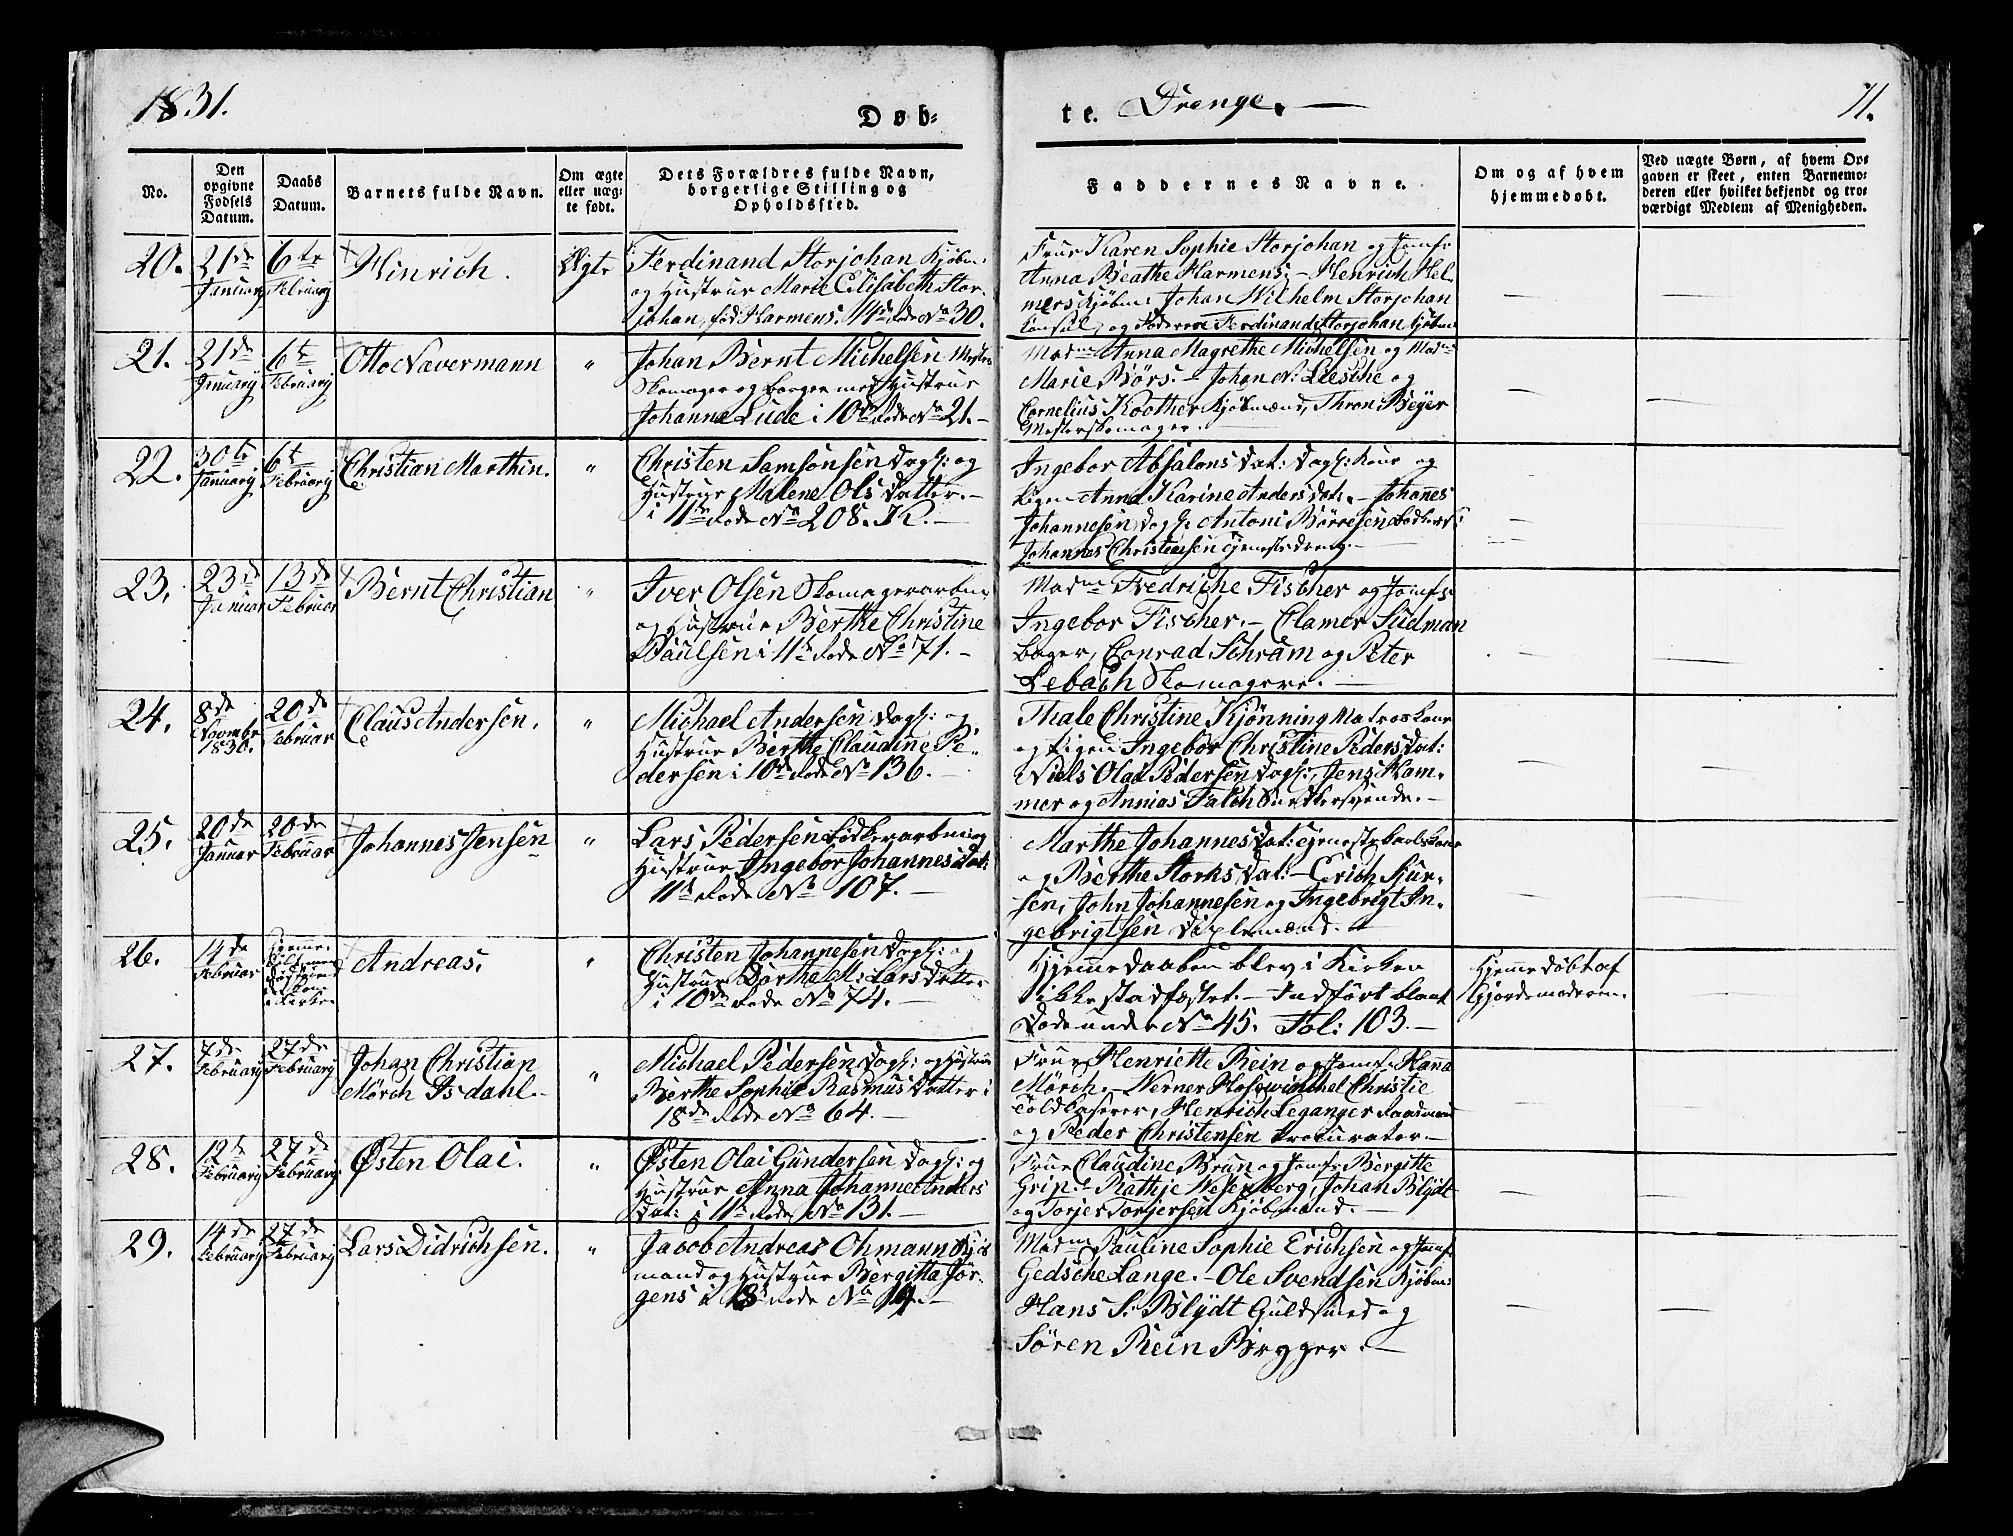 1831.
Døb-
te. Drenge.
11.
No.
Den
opgivne
Fødsels
Datum.
Daabs
Datum.
Barnets fulde Navn.
Om ægte
eller uæg-
te født.
Dets Forældres fulde Navn,
borgerlige Stilling og
Opholdssted.
Faddernes Navne.
Om og af hvem
hjemmedøbt.
Ved uægte Børn, af hvem Op-
gaven er skeet, enten Barnemo-
deren eller hvilket bekjendt og tro-
værdigt Medlem af Menigheden.
20.
21de
Januarij
6te
Februarij
Hinrich.
Ægte
Ferdinand Storjohan Kjøbm:
og Hustrue Marie Elisabeth Stor-
johan, fød Harmens. 14de Rode No 30.
Frue Karen Sophie Storjohan og Jomfr
Anna Beathe Harmens; – Henrich Hel-
mers Kjøbm: Johan Wilhelm Storjohan
Consul, og Faderen Ferdinand Storjohan Kjøbm:
21.
21de
Januarij
6te
Februarij
Otto Navermann
"
Johan Bernt Michelsen Mester
Skomager og Borger med Hustrue
Johanne Lude i 10de Rode No 21. –
Madme Anna Magrethe Michelsen og Madme
Marie Børs. – Johan N: Liesche og
Cornelius Koother Kjøbmænd, Thron Beyer
Mesterskomager.
22.
30te
Januarij
6te
Februarij
Christian Marthin.
"
Christen Samsonsen Dagk: og
Hustrue Malene Ols Datter. –
i 11te Rode No 208. K. –
Ingebor Absalons Dat: Dagk: Kone og
Pigen Anna Karine Anders Dat. – Johannes
Johannesen Dagk. Antoni Børresen Bødkers:
Johannes Christiansen Tjenestedreng. –
23.
23de
Januar
13de
Februar
Bernt Christian
"
Iver Olsen Skomagerarbm
og Hustrue Berthe Christine
Paulsen i 11te Rode No 171. –
Madme Fredriche Fischer og Jomfr
Ingebor Fischer. – Clamer Sudman
Bager, Conrad Schram og Peter
Lebach Skomagere. –
24.
8de
Novembr
1830.
20de
Februar
Claus Andersen.
"
Michael Andersen Dagk: og
Hustrue Berthe Claudine Pe-
dersen i 10de Rode No 136. –
Thale Christine Kjønning Matroskone
og Pigen Ingebor Christine Peders Dat:
Niels Olai Pedersen Dagk:, Jens Ham-
mer og Annias Falch Snedkersvende. –
25.
20de
Januar
20de
Februar
Johannes Jensen
"
Lars Pedersen Bødkerarbm og
Hustrue Ingebor Johannes Dat:
11te Rode No 107. –
Marthe Johannes Dat: Tjenestekarlskone
og Berthe Storks Dat: – Erich Siur-
sen, John Johannesen og Ingebrigt In-
gebrigtsen Diplemænd. –
26.
14de
Februar
Andreas.
"
Christen Johannesen Dagk: og
Hustrue Dorthe M: Lars Datter
i 10de Rode No 74. –
Hjemmedaaben blev i Kirken
ikke stadfæstet. – Indført blant
Døde under No 45. Fol: 103. –
Hjemmedøbt af
Gjordemoderen.
27.
7de
Februarij
27de
Februarij
Johan Christian
Mørch Isdahl. –
"
Michael Pedersen Dagk: og Hustrue
Berthe Sophie Rasmus Datter i
18de Rode No 64. –
Frue Henriette Rein og Jomfr Hanna
Mörch. – Werner Hosewinckel Christie
Toldkaserer, Henrich Leganger Raadmand
og Peder Christensen Procurator. –
28.
12te
Februarij
27de
Februarij
Østen Olai.
"
Østen Olai Gundersen Dagk: og
Hustrue Anna Johanne Anders
Dat: i 11te Rode No 131. –
Frue Claudine Brun og Jomfr Bergitte
Grip. – Rathje Wesenberg, Johan Blydt
og Torjer Torjersen Kjøbmænd. –
29.
14de
Februarij
27de
Februarij
Lars Didrichsen.
"
Jacob Andreas Ohmann Kjøb
mand og Hustrue Bergitta Jør-
gens i 18 Rode No 19. –
Madme Pauline Sophie Erichsen og Jomfr
Gedsche Lange. – Ole Svendsen Kjøbm:
Hans S: Blydt Guldsmed og
Søren Rein Brygger. –